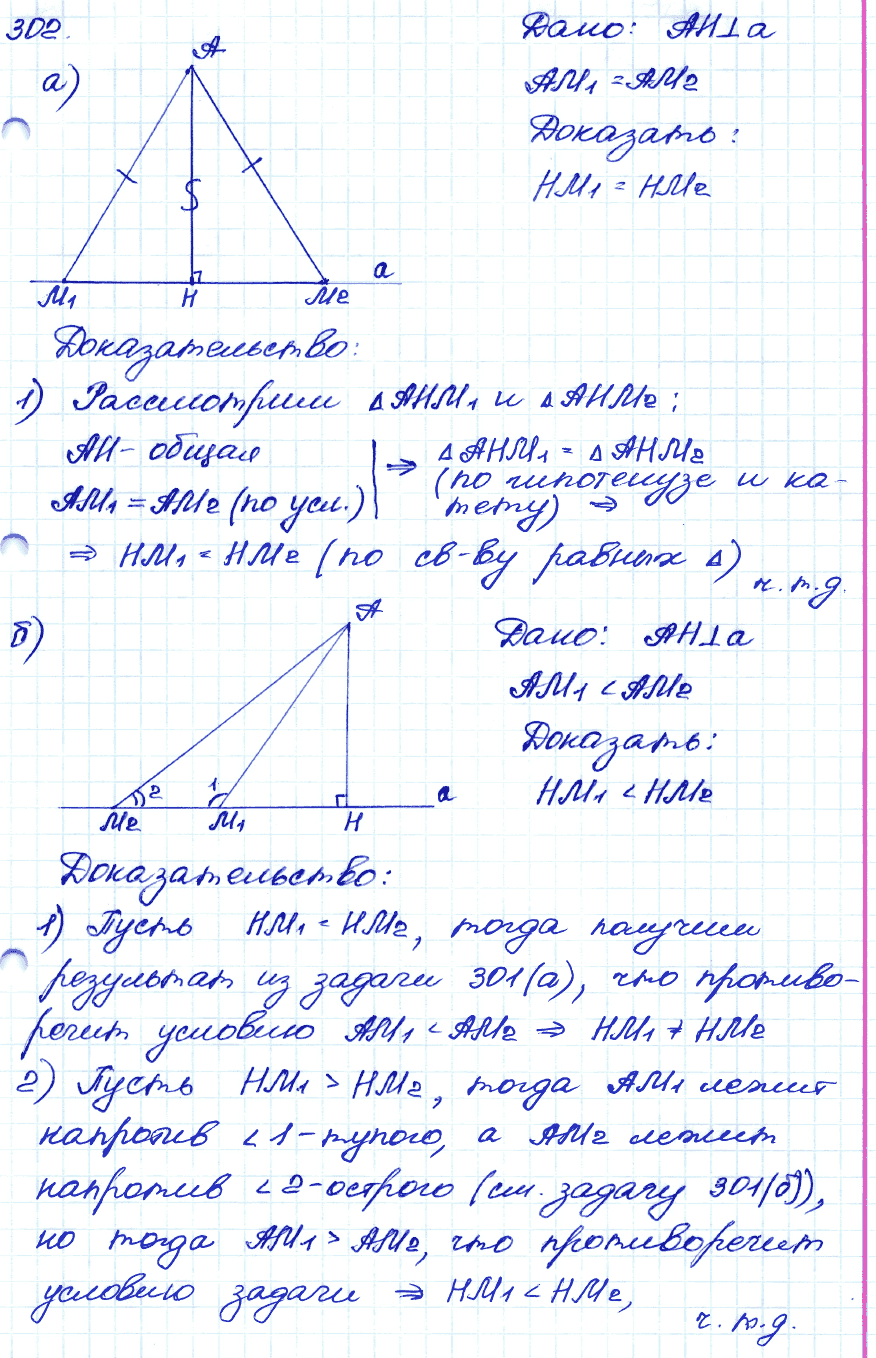 302.
а)
A
M1 H M2 a
Дано: AH⊥a
AM1 = AM2
Доказать:
HM1 = HM2
Доказательство:
1) Рассмотрим △AHM1 и △AHM2:
AH - общая
AM1 = AM2 (по усл.)
⇒ △AHM1 = △AHM2
(по гипотенузе и ка-
тету) ⇒
⇒ HM1 = HM2 (по св-ву равных △)
ч.т.д.
б)
A
2 1
M2 M1 H a
Дано: AH⊥a
AM1 < AM2
Доказать:
HM1 < HM2
Доказательство:
1) Пусть HM1 = HM2, тогда получим
результат из задачи 301(а), что противо-
речит условию AM1 < AM2 ⇒ HM1 ≠ HM2
2) Пусть HM1 > HM2, тогда AM1 лежит
напротив ∠1-тупого, а AM2 лежит
напротив ∠2-острого (см. задачу 301(б)),
но тогда AM1 > AM2, что противоречит
условию задачи ⇒ HM1 < HM2,
ч.т.д.